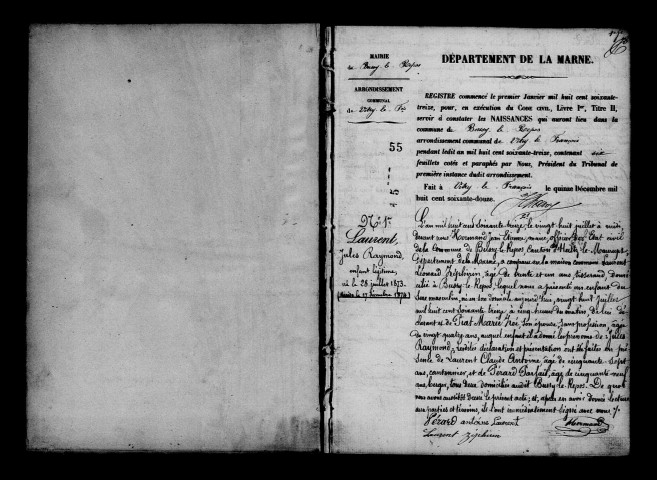 MAIRIE
de Bussy le Repos
ARRONDISSEMENT
COMMUNAL
de Vitry le Fois
55
DÉPARTEMENT DE LA MARNE.
REGISTRE commencé le premier Janvier mil huit cent soixante-
treize, pour, en exécution du CODE CIVIL, Livre Ier, Titre II,
servir à constater les NAISSANCES qui auront lieu dans la
commune de Bussy le Repos
arrondissement communal de Vitry le François
pendant ledit an mil huit cent soixante-treize, contenant six
feuillets cotés et paraphés par Nous, Président du Tribunal de
première instance dudit arrondissement.
Fait à Vitry le François le quinze Décembre mil
huit cent soixante-douze.
No 1er
Laurent,
Jules Raymond,
enfant légitime,
né le 28 juillet 1873.
L'an mil huit cent soixante treize, le vingt huit juillet à midi
devant nous Normand Jean Etienne, maire, officier de l'Etat civil
de la Commune de Bussy-le-Repos, Canton d'Heiltz-le-Maurupt
Département de la Marne, a comparu en la maison commune Laurent
Léonard Zéphirin, âgé de trente et un ans, tisserand domi
cilié à Bussy-le-Repos, lequel nous a présenté un enfant du
sexe masculin, né en son domicile aujourd'hui, vingt huit juillet
mil huit cent soixante treize à cinq heures du matin, de lui dé
clarant et de Prat Marie, son épouse, sans profession, âgée
de vingt quatre ans, auquel enfant il a donné les prénoms de Jules
Raymond; lesdites déclaration et présentation ont été faites en pré
sence de Laurent Claude Antoine, âgé de cinquante-sept
ans, cantonnier, et de Gérard Parfait, âgé de cinquante neuf
ans, berger, tous deux domiciliés audit Bussy-le-Repos. De quoi
nous avons aussitôt dressé le présent acte; et, après en avoir donné lecture
aux parties et témoins, ils l'ont immédiatement signé avec nous.
Gérard antoine Laurent Normand
Laurent ziphirin